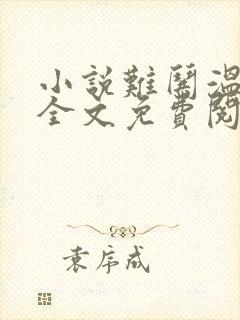 小說難鬨溫
全文免費閱
袁序成